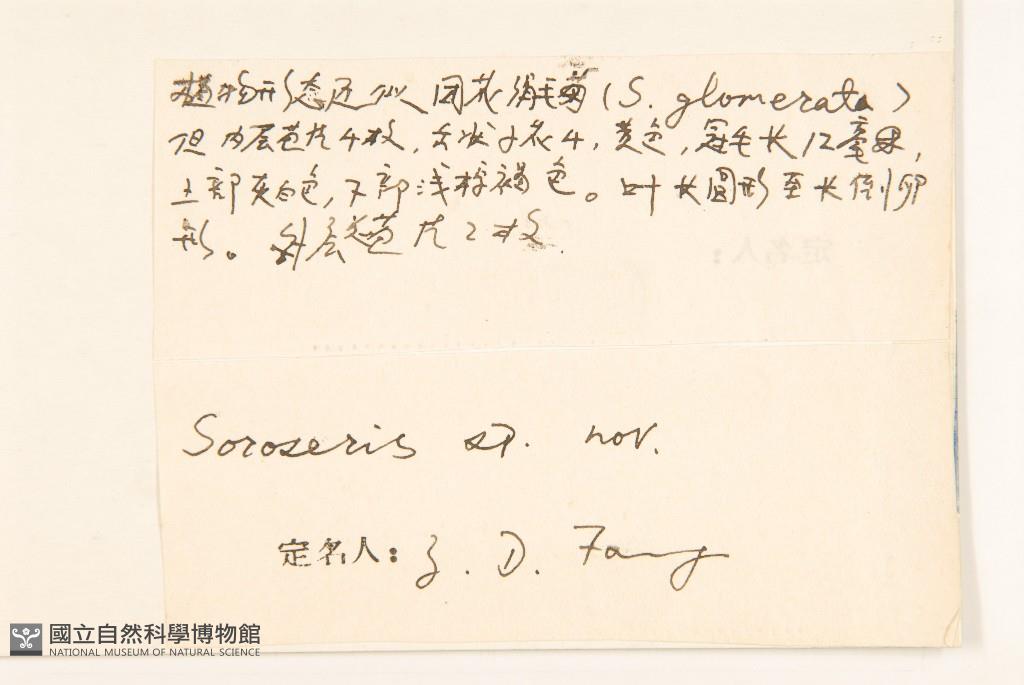 植物形态近似团花绢毛菊(S. glomerata)
但内层苞片4枚,舌状小花4,黄色,冠毛长12毫米,
上部灰白色,下部浅棕褐色。叶长圆形至长倒卵
形。外层总苞片2枚.
Soroseris sp. nov.
定名人: Z. D. Fang
國立自然科學博物館
NATIONAL MUSEUM OF NATURAL SCIENCE